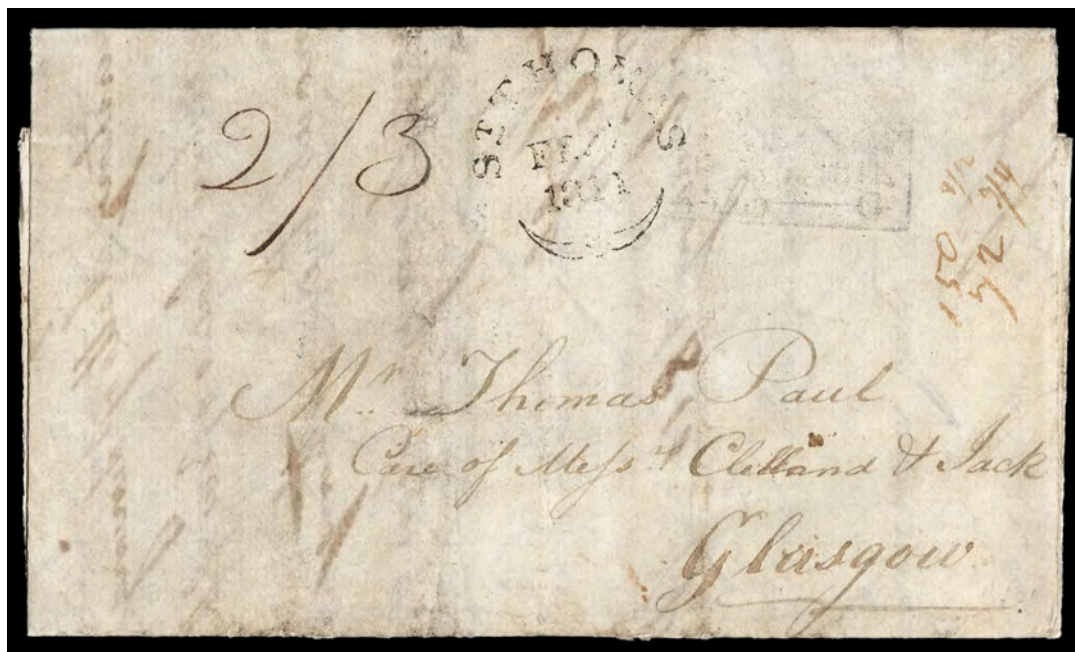 2/3
ST THOMAS
1811
Mr. Thomas Paul
Care of Messrs. Clelland & Jack
Glasgow